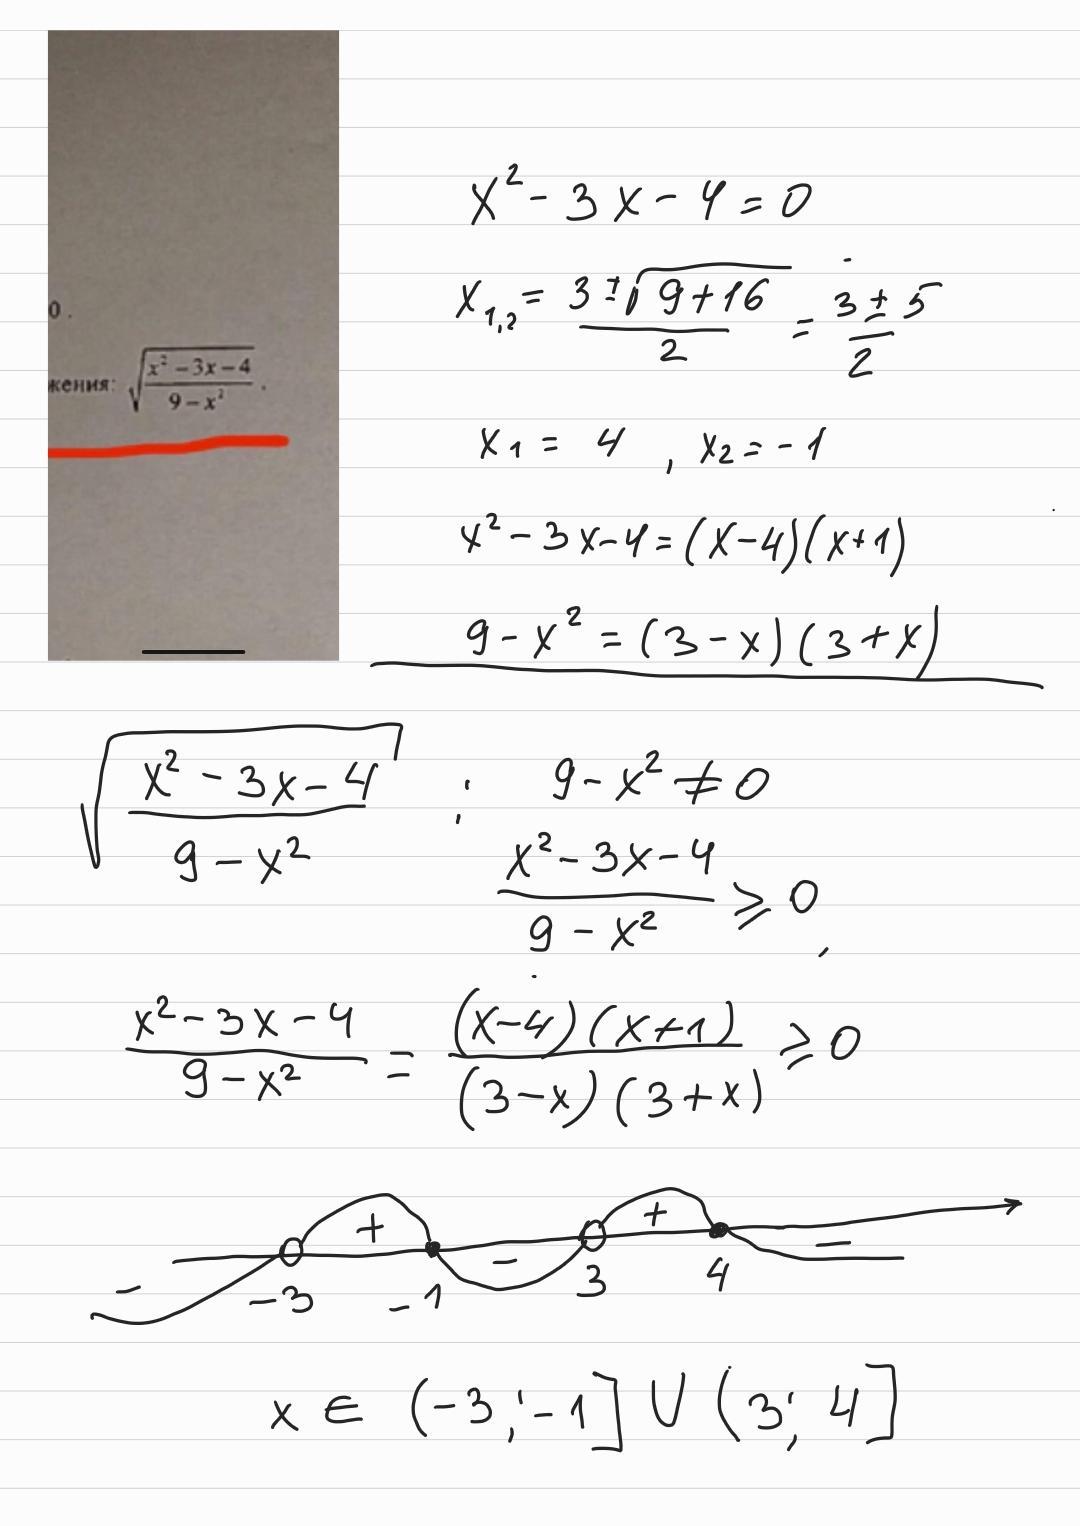 0.
жения: √((x² − 3x − 4)/(9 − x²)).
x² - 3x - 4 = 0
x₁,₂ = (3 ± √(9+16))/2 = (3 ± 5)/2
x₁ = 4, x₂ = -1
x² - 3x - 4 = (x-4)(x+1)
9 - x² = (3-x)(3+x)
√((x² - 3x - 4)/(9 - x²)) ; 9 - x² ≠ 0
(x² - 3x - 4)/(9 - x²) ⩾ 0,
(x² - 3x - 4)/(9 - x²) = ((x-4)(x+1))/((3-x)(3+x)) ⩾ 0
- + - + -
-3 -1 3 4
x ∈ (-3; -1] ∪ (3; 4]